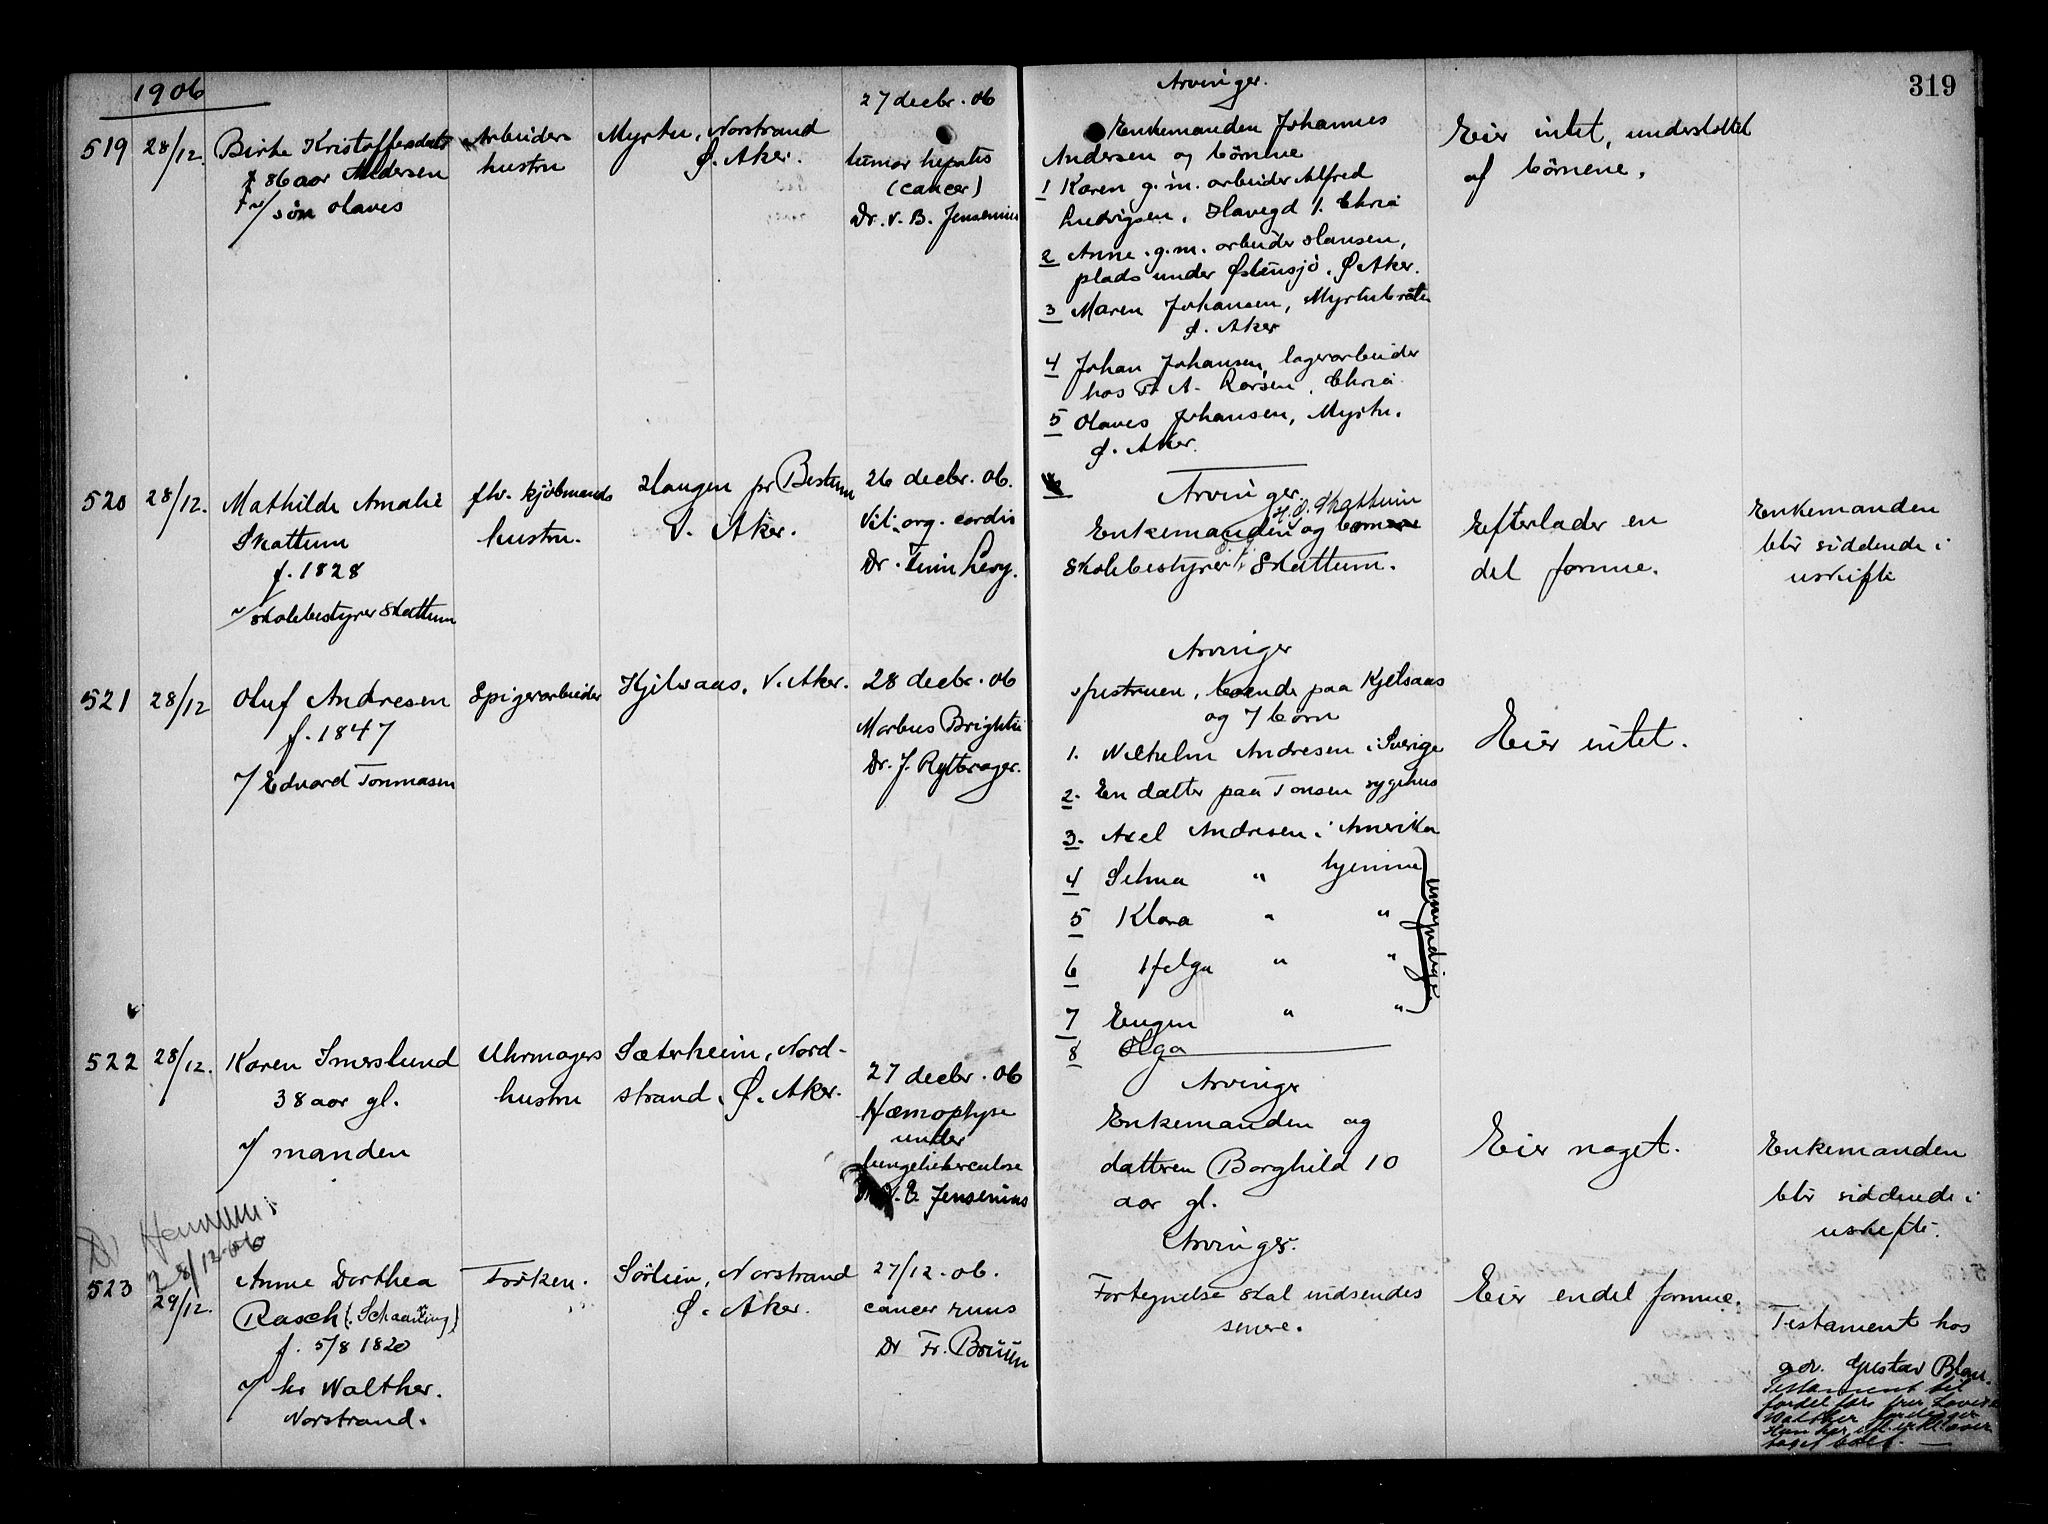 1906
319
519
28/12.
Birte Kristoffersdatr
86 aar Andersen
v/ søn Olaves
Arbeider
hustru
Myrter, Norstrand
Ø. Aker.
27 decbr. 06
tumor hepatis
(cancer)
Dr. V. B. Jensenius
Arvinger.
Enkemanden Johannes
Andersen og børnene
1 Karen g.m. arbeider Alfred
Ludvigsen, Havegd 1. Chria
2 Anne g.m. arbeider Hansen,
plads under Østensjø, Ø Aker.
3 Maren Johansen, Myrterbråten
Ø. Aker
4 Johan Johansen, lagerarbeider
hos A. Larsen, Chria
5 Olaves Johansen, Myrter,
Ø. Aker.
Eier intet, understøttet
af børnene.
520
28/12.
Mathilde Amalie
Skattum
f. 1828
v/ skolebestyrer Skattum
fhv. kjøbmands
hustru.
Haugen pr Bestum
V. Aker.
26 decbr. 06.
Vit. org. cordis
Dr. Levy.
Arvinger.
Enkemanden og
Skattum
skolebestyrer Skattum.
Efterlader en
del formue.
Enkemanden
blir siddende i
uskifte
521
28/12
Oluf Andresen
f. 1847
v/ Edvard Tommasen
Spigerarbeider
Kjelsaas, V. Aker.
28 decbr. 06
Morbus Brightii
Dr. J. Rytterager.
Arvinger
Hustruen, boende paa Kjelsaas
og 7 børn
1. Wilhelm Andresen i Sverige
2. En datter paa Tonsen sygehus
3. Axel Andresen i Amerika
4 Selma " hjemme
5 Klara " "
6 Helga " "
7 Eugen " "
umyndige
8 Olga
Eier intet.
522
28/12.
Karen Smerslund
38 aar gl.
v/ manden
Uhrmagers
hustru
Sæterheim, Nord-
strand, Ø. Aker.
27 decbr. 06
Hæmoptyse
under
lungetuberculose
Dr. V. B. Jensenius
Arvinger
Enkemanden og
datteren Borghild 10
aar gl.
Eier noget.
Enkemanden
blir siddende i
uskifte.
28/12-06
523
29/12.
Anne Dorthea
Rasch (Schaaning)
f. 5/8 1820
v/ hr Walther.
Norstrand.
Frøken.
Sørlien, Norstrand
Ø. Aker.
27/12. 06.
cancer
Dr Fr. Bruun
Arvinger.
Fortegnelse skal indsendes
senere.
Eier endel formue.
Testament hos
adv. Gustav Blau.
Testament til
fordel for fru
Walther